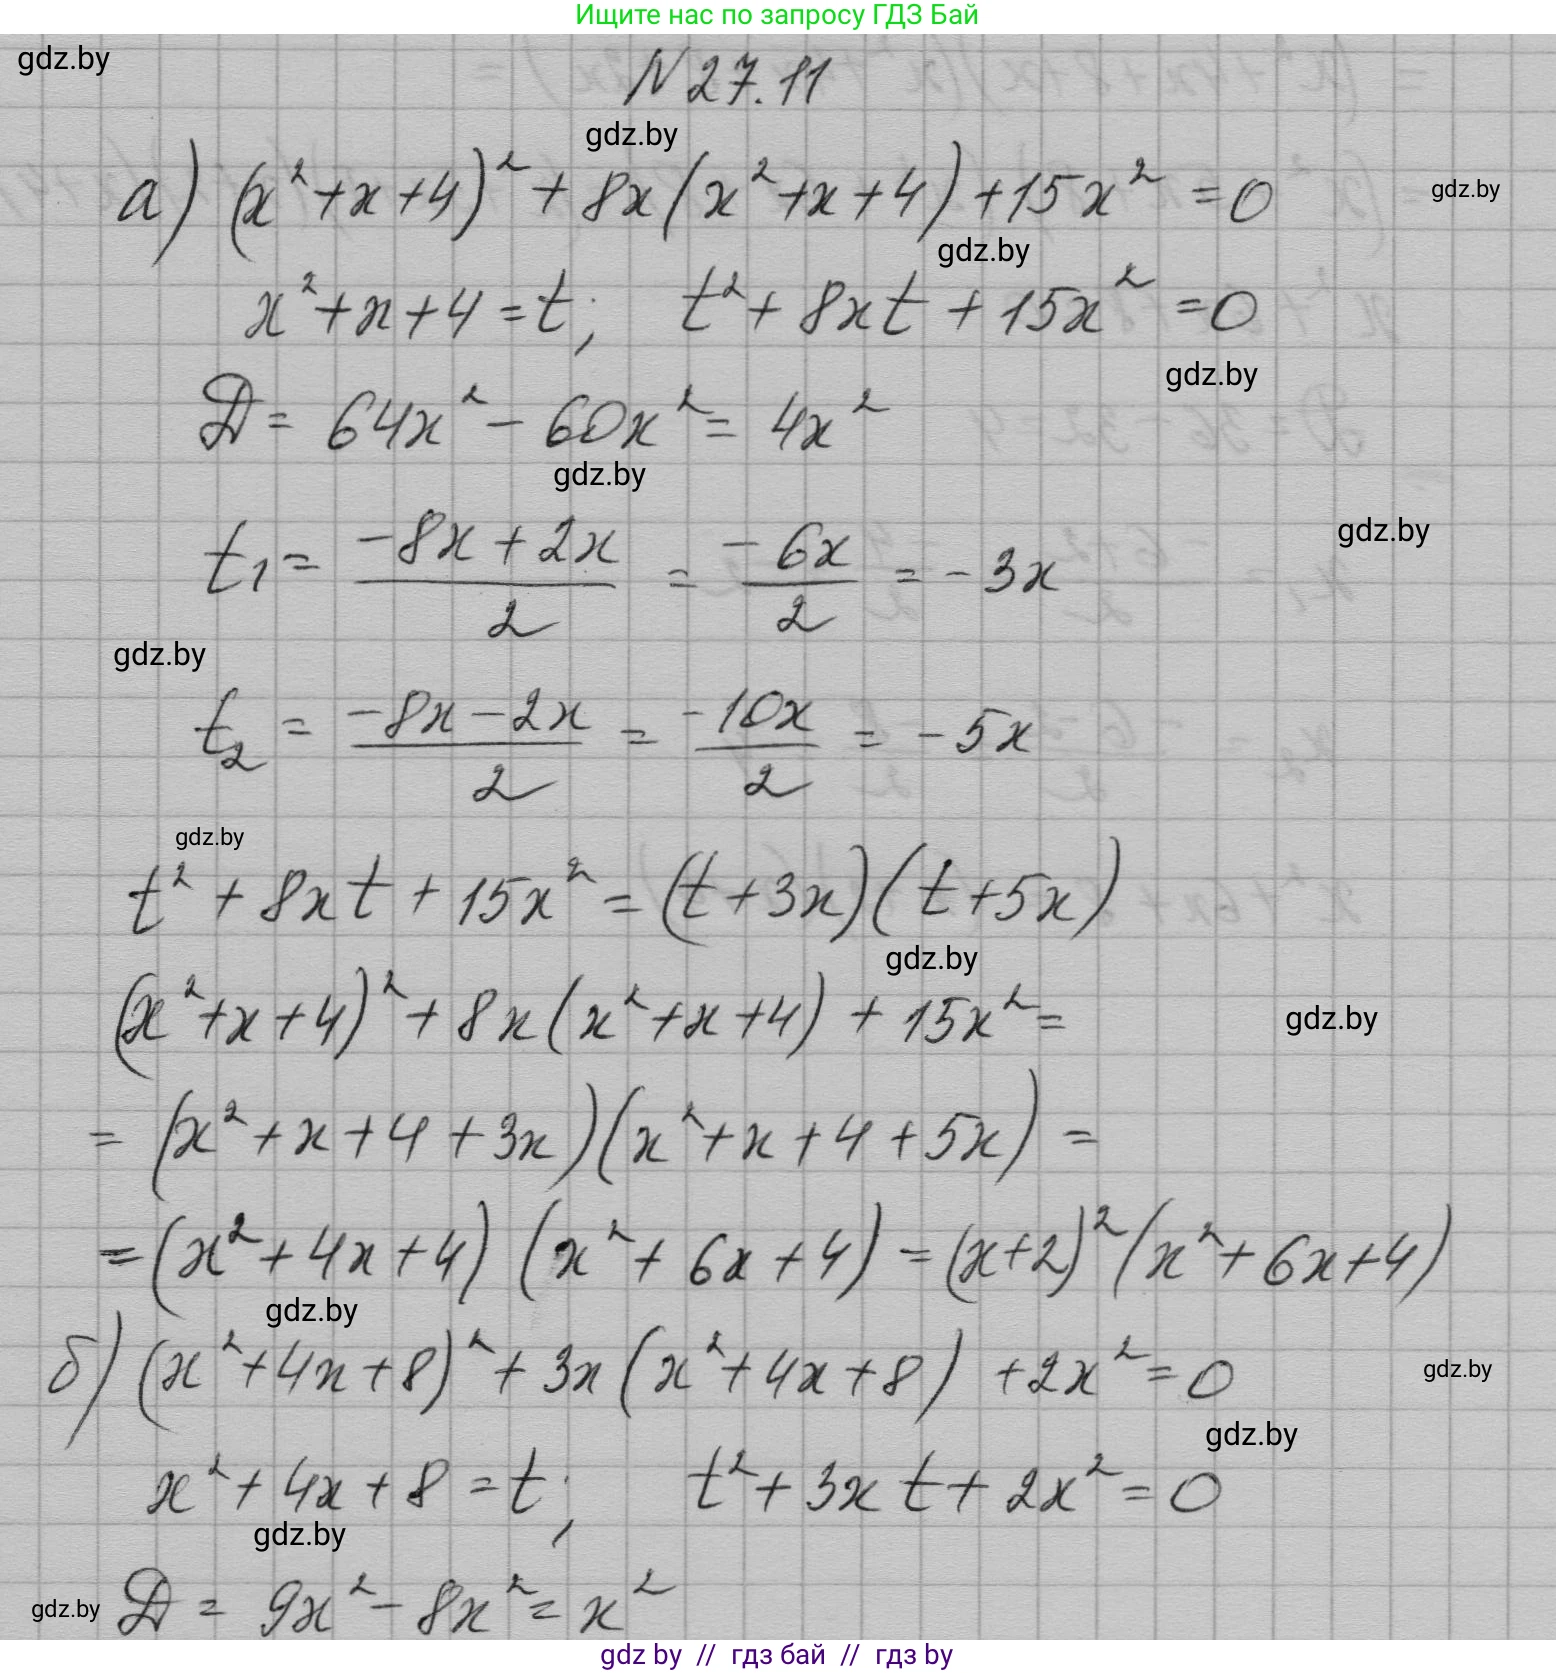 Ищите нас по запросу ГДЗ Бай
gdz.by
N 27.11
gdz.by
а) (x²+x+4)² + 8x(x²+x+4)+15x² =0
gdz.by
gdz.by
x²+x+4=t; t²+ 8xt + 15x² =0
gdz.by
D= 64x² - 60x² = 4x²
gdz.by
gdz.by
t₁= (-8x+2x)/2 = (-6x)/2 = -3x
gdz.by
t₂ = (-8x-2x)/2 = (-10x)/2 = -5x
gdz.by
t² + 8xt + 15x² = (t+3x)(t+5x)
gdz.by
(x²+x+4)²+ 8x(x²+x+4) + 15x²=
gdz.by
= (x²+x+4+3x)(x²+x+4+5x) =
=(x²+4x+4) (x²+ 6x+4) = (x+2)²(x²+6x+4)
gdz.by
б) (x²+4x+8)²+ 3x(x²+4x+8) +2x²=0
gdz.by
gdz.by
x²+4x+8 =t; t²+3xt+2x²=0
gdz.by
gdz.by
D = 9x²-8x²= x²
gdz by // гдз бай // гдз by